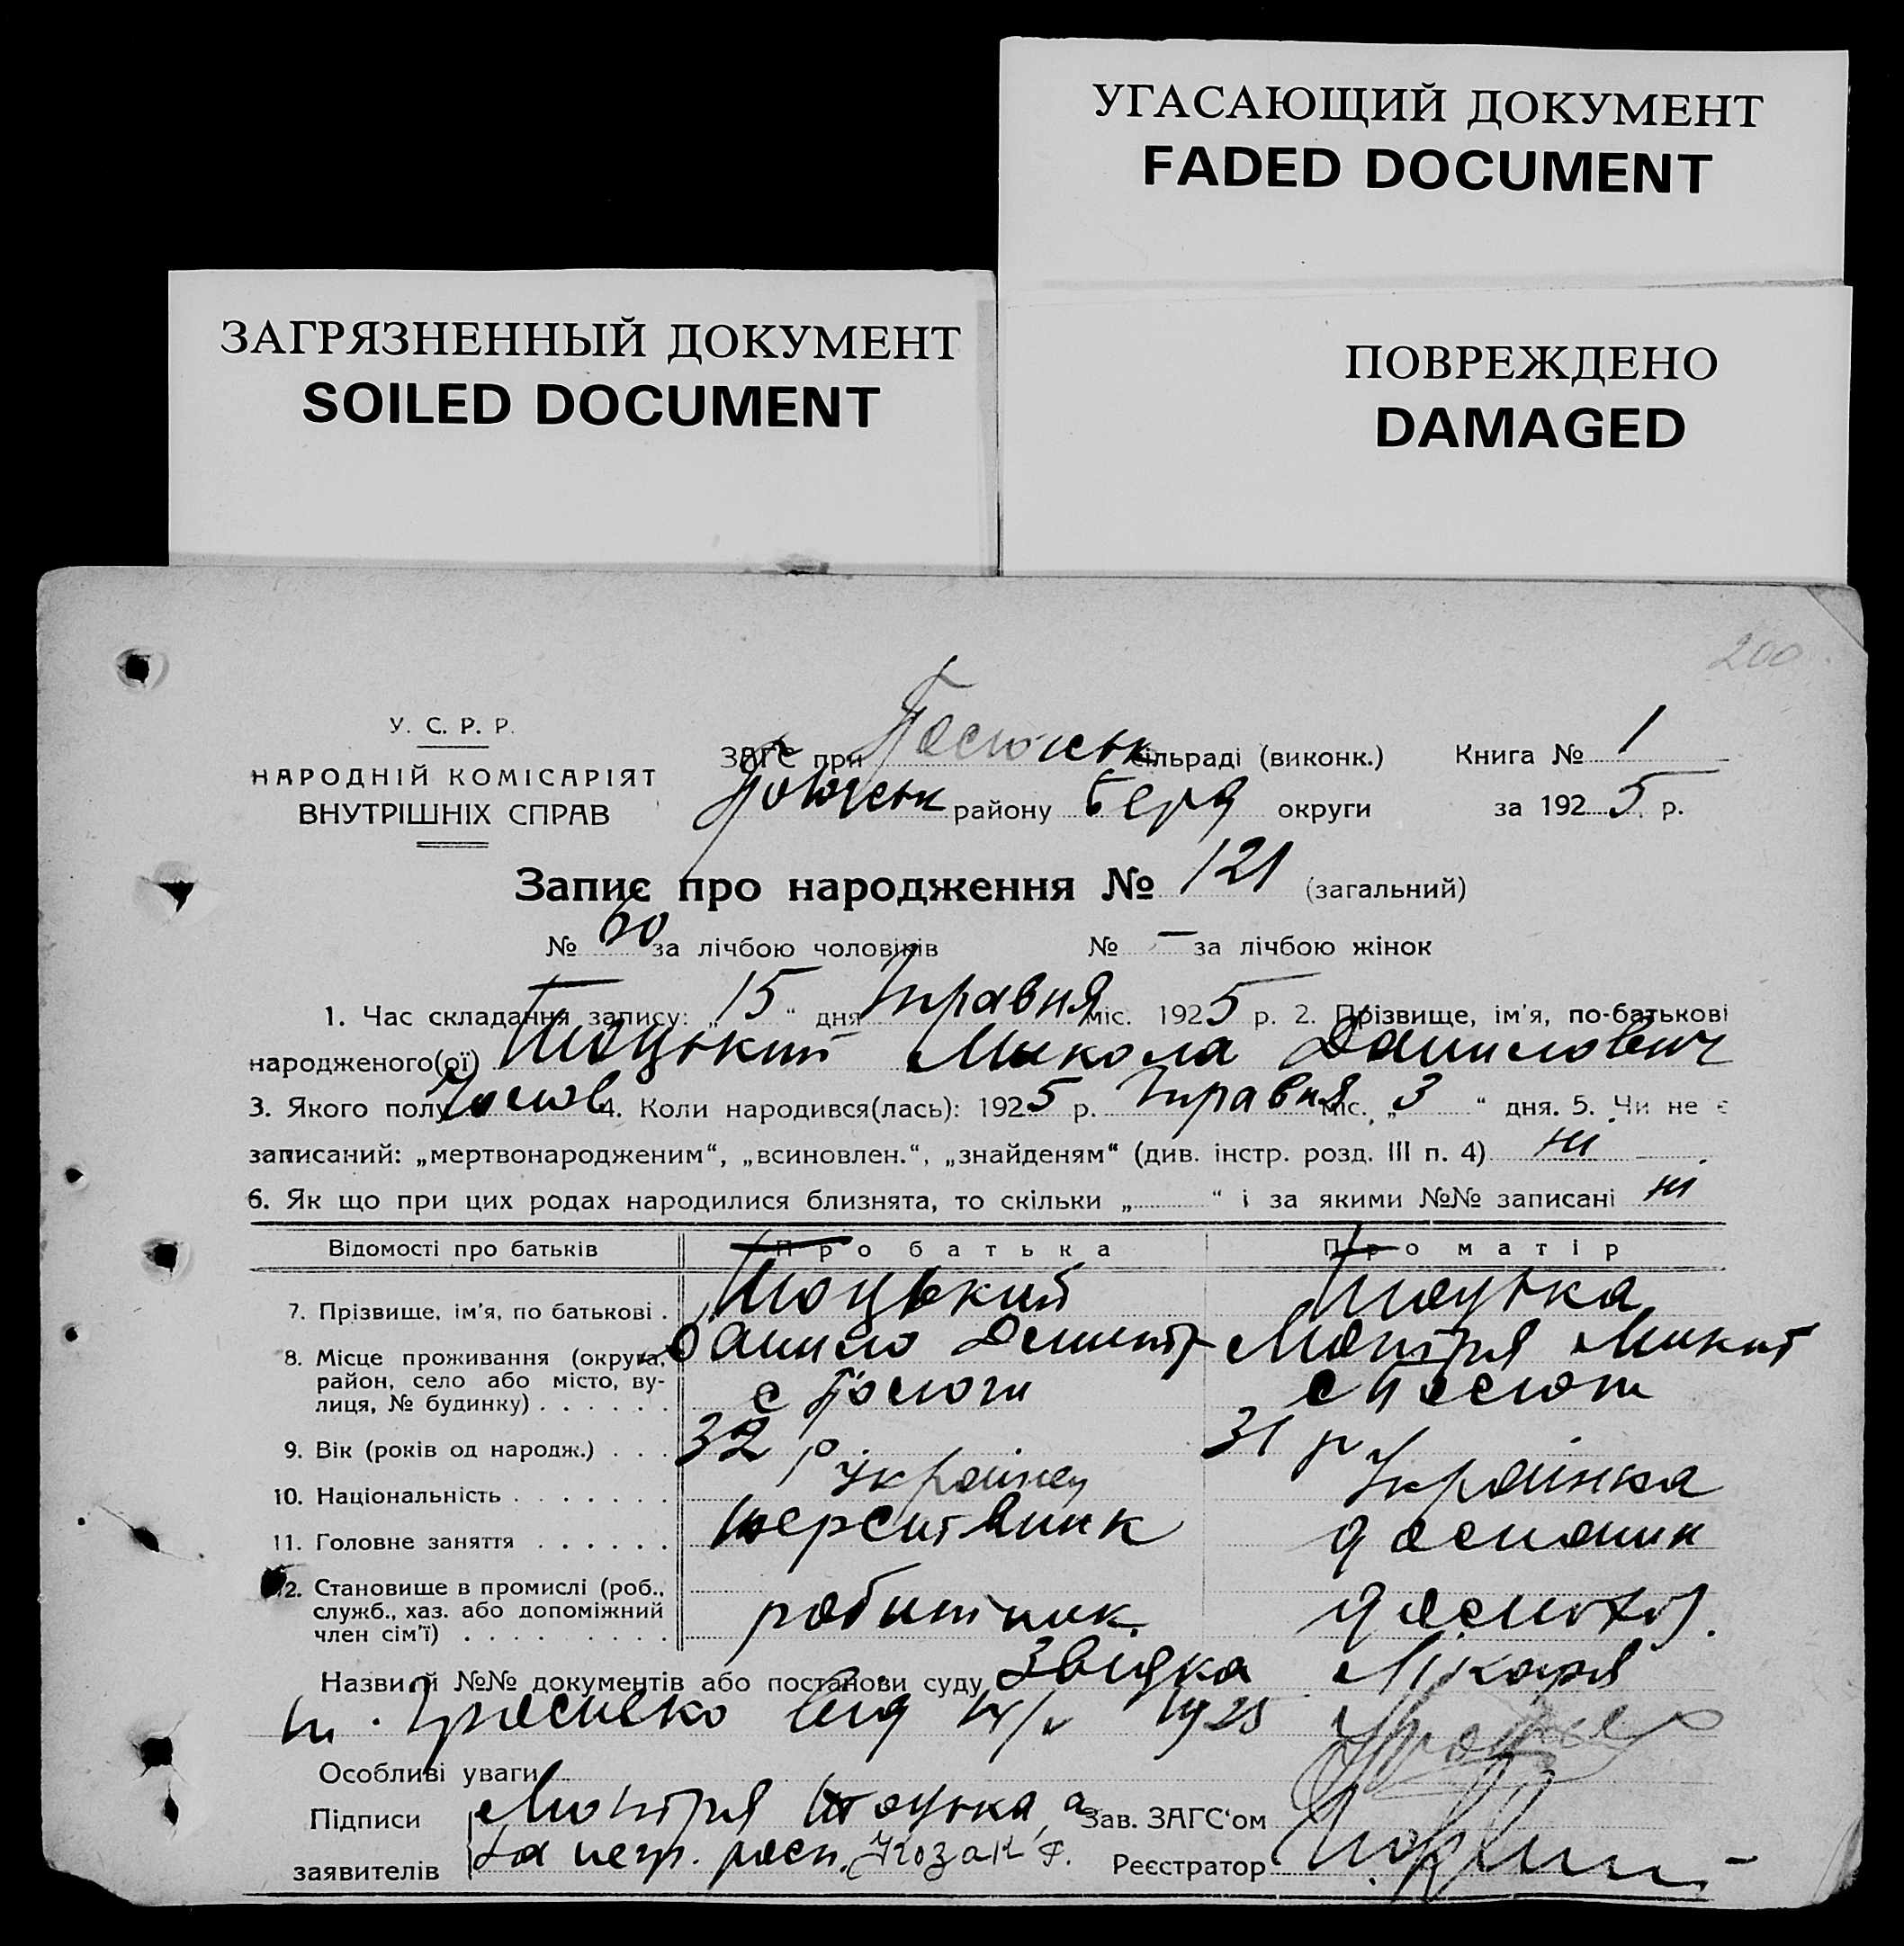 УГАСАЮЩИЙ ДОКУМЕНТ
FADED DOCUMENT
ЗАГРЯЗНЕННЫЙ ДОКУМЕНТ
SOILED DOCUMENT
ПОВРЕЖДЕНО
DAMAGED
200
У. С. Р. Р.
НАРОДНІЙ КОМІСАРІЯТ
ВНУТРІШНІХ СПРАВ
ЗАГС при сільраді (виконк.) Книга № 1
району Берд округи за 1925 р.
Запис про народження № 121 (загальний)
№ 60 за лічбою чоловіків № – за лічбою жінок
1. Час складання запису: „15“ дня Травня міс. 1925 р. 2. Прізвище, ім'я, по-батькові
народженого(ої) Тоцький Микола Данилович
3. Якого полу Чолов 4. Коли народився(лась): 1925 р. Травня міс. „3“ дня. 5. Чи не є
записаний: „мертвонародженим“, „всиновлен.“, „знайденям“ (див. інстр. розд. III п. 4) ні
6. Як що при цих родах народилися близнята, то скільки „ “ і за якими №№ записані ні
Відомості про батьків Про батька Про матір
7. Прізвище, ім'я, по батькові . Тоцький Тоцька
8. Місце проживання (округа, Данило Мотря Микит
район, село або місто, ву-
лиця, № будинку) . . . . . . с с
9. Вік (років од народж.) . . . 32 р 31 р
10. Національність . . . . . . . Українец Українка
11. Головне заняття . . . . . .
12. Становище в промислі (роб.,
служб., хаз. або допоміжний робитник
член сім'ї) . . . . . . . . .
Назви й №№ документів або постанови суду Звидка Лікаря
від 14/V 1925
Особливі уваги
Підписи Мотря Тоцька, а Зав. ЗАГС'ом
заявителів за негр. расп. Козак Реєстратор